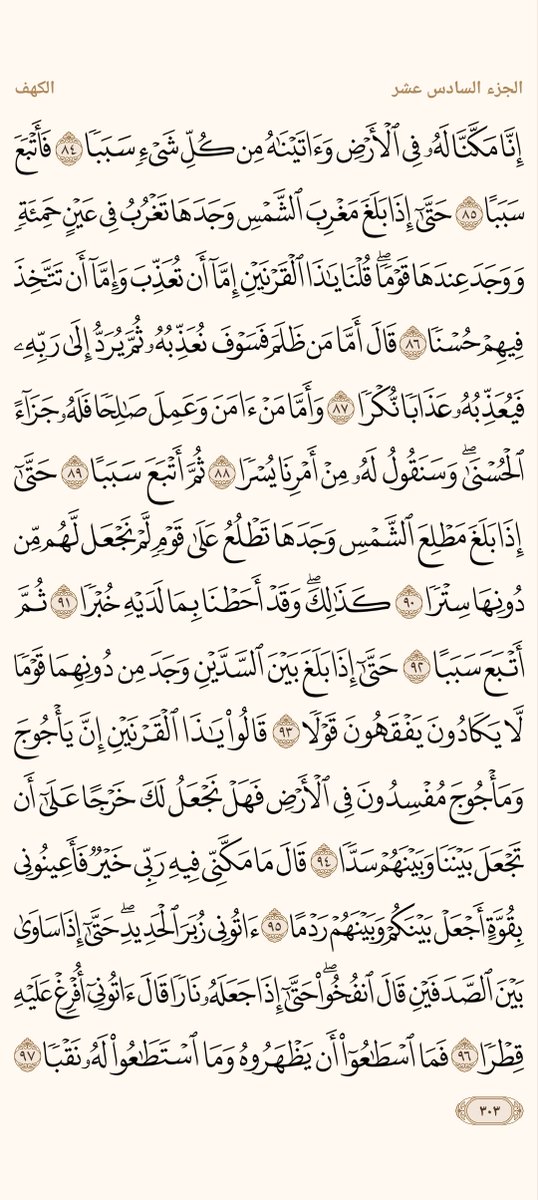 الجزء السادس عشر
الكهف
إِنَّا مَكَّنَّا لَهُۥ فِي ٱلۡأَرۡضِ وَءَاتَيۡنَٰهُ مِن كُلِّ شَيۡءٖ سَبَبٗا ٨٤ فَأَتۡبَعَ
سَبَبًا ٨٥ حَتَّىٰٓ إِذَا بَلَغَ مَغۡرِبَ ٱلشَّمۡسِ وَجَدَهَا تَغۡرُبُ فِي عَيۡنٍ حَمِئَةٖ
وَوَجَدَ عِندَهَا قَوۡمٗاۖ قُلۡنَا يَٰذَا ٱلۡقَرۡنَيۡنِ إِمَّآ أَن تُعَذِّبَ وَإِمَّآ أَن تَتَّخِذَ
فِيهِمۡ حُسۡنٗا ٨٦ قَالَ أَمَّا مَن ظَلَمَ فَسَوۡفَ نُعَذِّبُهُۥ ثُمَّ يُرَدُّ إِلَىٰ رَبِّهِۦ
فَيُعَذِّبُهُۥ عَذَابٗا نُّكۡرٗا ٨٧ وَأَمَّا مَنۡ ءَامَنَ وَعَمِلَ صَٰلِحٗا فَلَهُۥ جَزَآءً
ٱلۡحُسۡنَىٰۖ وَسَنَقُولُ لَهُۥ مِنۡ أَمۡرِنَا يُسۡرٗا ٨٨ ثُمَّ أَتۡبَعَ سَبَبًا ٨٩ حَتَّىٰٓ
إِذَا بَلَغَ مَطۡلِعَ ٱلشَّمۡسِ وَجَدَهَا تَطۡلُعُ عَلَىٰ قَوۡمٖ لَّمۡ نَجۡعَل لَّهُم مِّن
دُونِهَا سِتۡرٗا ٩٠ كَذَٰلِكَۖ وَقَدۡ أَحَطۡنَا بِمَا لَدَيۡهِ خُبۡرٗا ٩١ ثُمَّ
أَتۡبَعَ سَبَبًا ٩٢ حَتَّىٰٓ إِذَا بَلَغَ بَيۡنَ ٱلسَّدَّيۡنِ وَجَدَ مِن دُونِهِمَا قَوۡمٗا
لَّا يَكَادُونَ يَفۡقَهُونَ قَوۡلٗا ٩٣ قَالُواْ يَٰذَا ٱلۡقَرۡنَيۡنِ إِنَّ يَأۡجُوجَ
وَمَأۡجُوجَ مُفۡسِدُونَ فِي ٱلۡأَرۡضِ فَهَلۡ نَجۡعَلُ لَكَ خَرۡجًا عَلَىٰٓ أَن
تَجۡعَلَ بَيۡنَنَا وَبَيۡنَهُمۡ سَدّٗا ٩٤ قَالَ مَا مَكَّنِّي فِيهِ رَبِّي خَيۡرٞ فَأَعِينُونِي
بِقُوَّةٍ أَجۡعَلۡ بَيۡنَكُمۡ وَبَيۡنَهُمۡ رَدۡمًا ٩٥ ءَاتُونِي زُبَرَ ٱلۡحَدِيدِۖ حَتَّىٰٓ إِذَا سَاوَىٰ
بَيۡنَ ٱلصَّدَفَيۡنِ قَالَ ٱنفُخُواْۖ حَتَّىٰٓ إِذَا جَعَلَهُۥ نَارٗا قَالَ ءَاتُونِيٓ أُفۡرِغۡ عَلَيۡهِ
قِطۡرٗا ٩٦ فَمَا ٱسۡطَٰعُوٓاْ أَن يَظۡهَرُوهُ وَمَا ٱسۡتَطَٰعُواْ لَهُۥ نَقۡبٗا ٩٧
٣٠٣